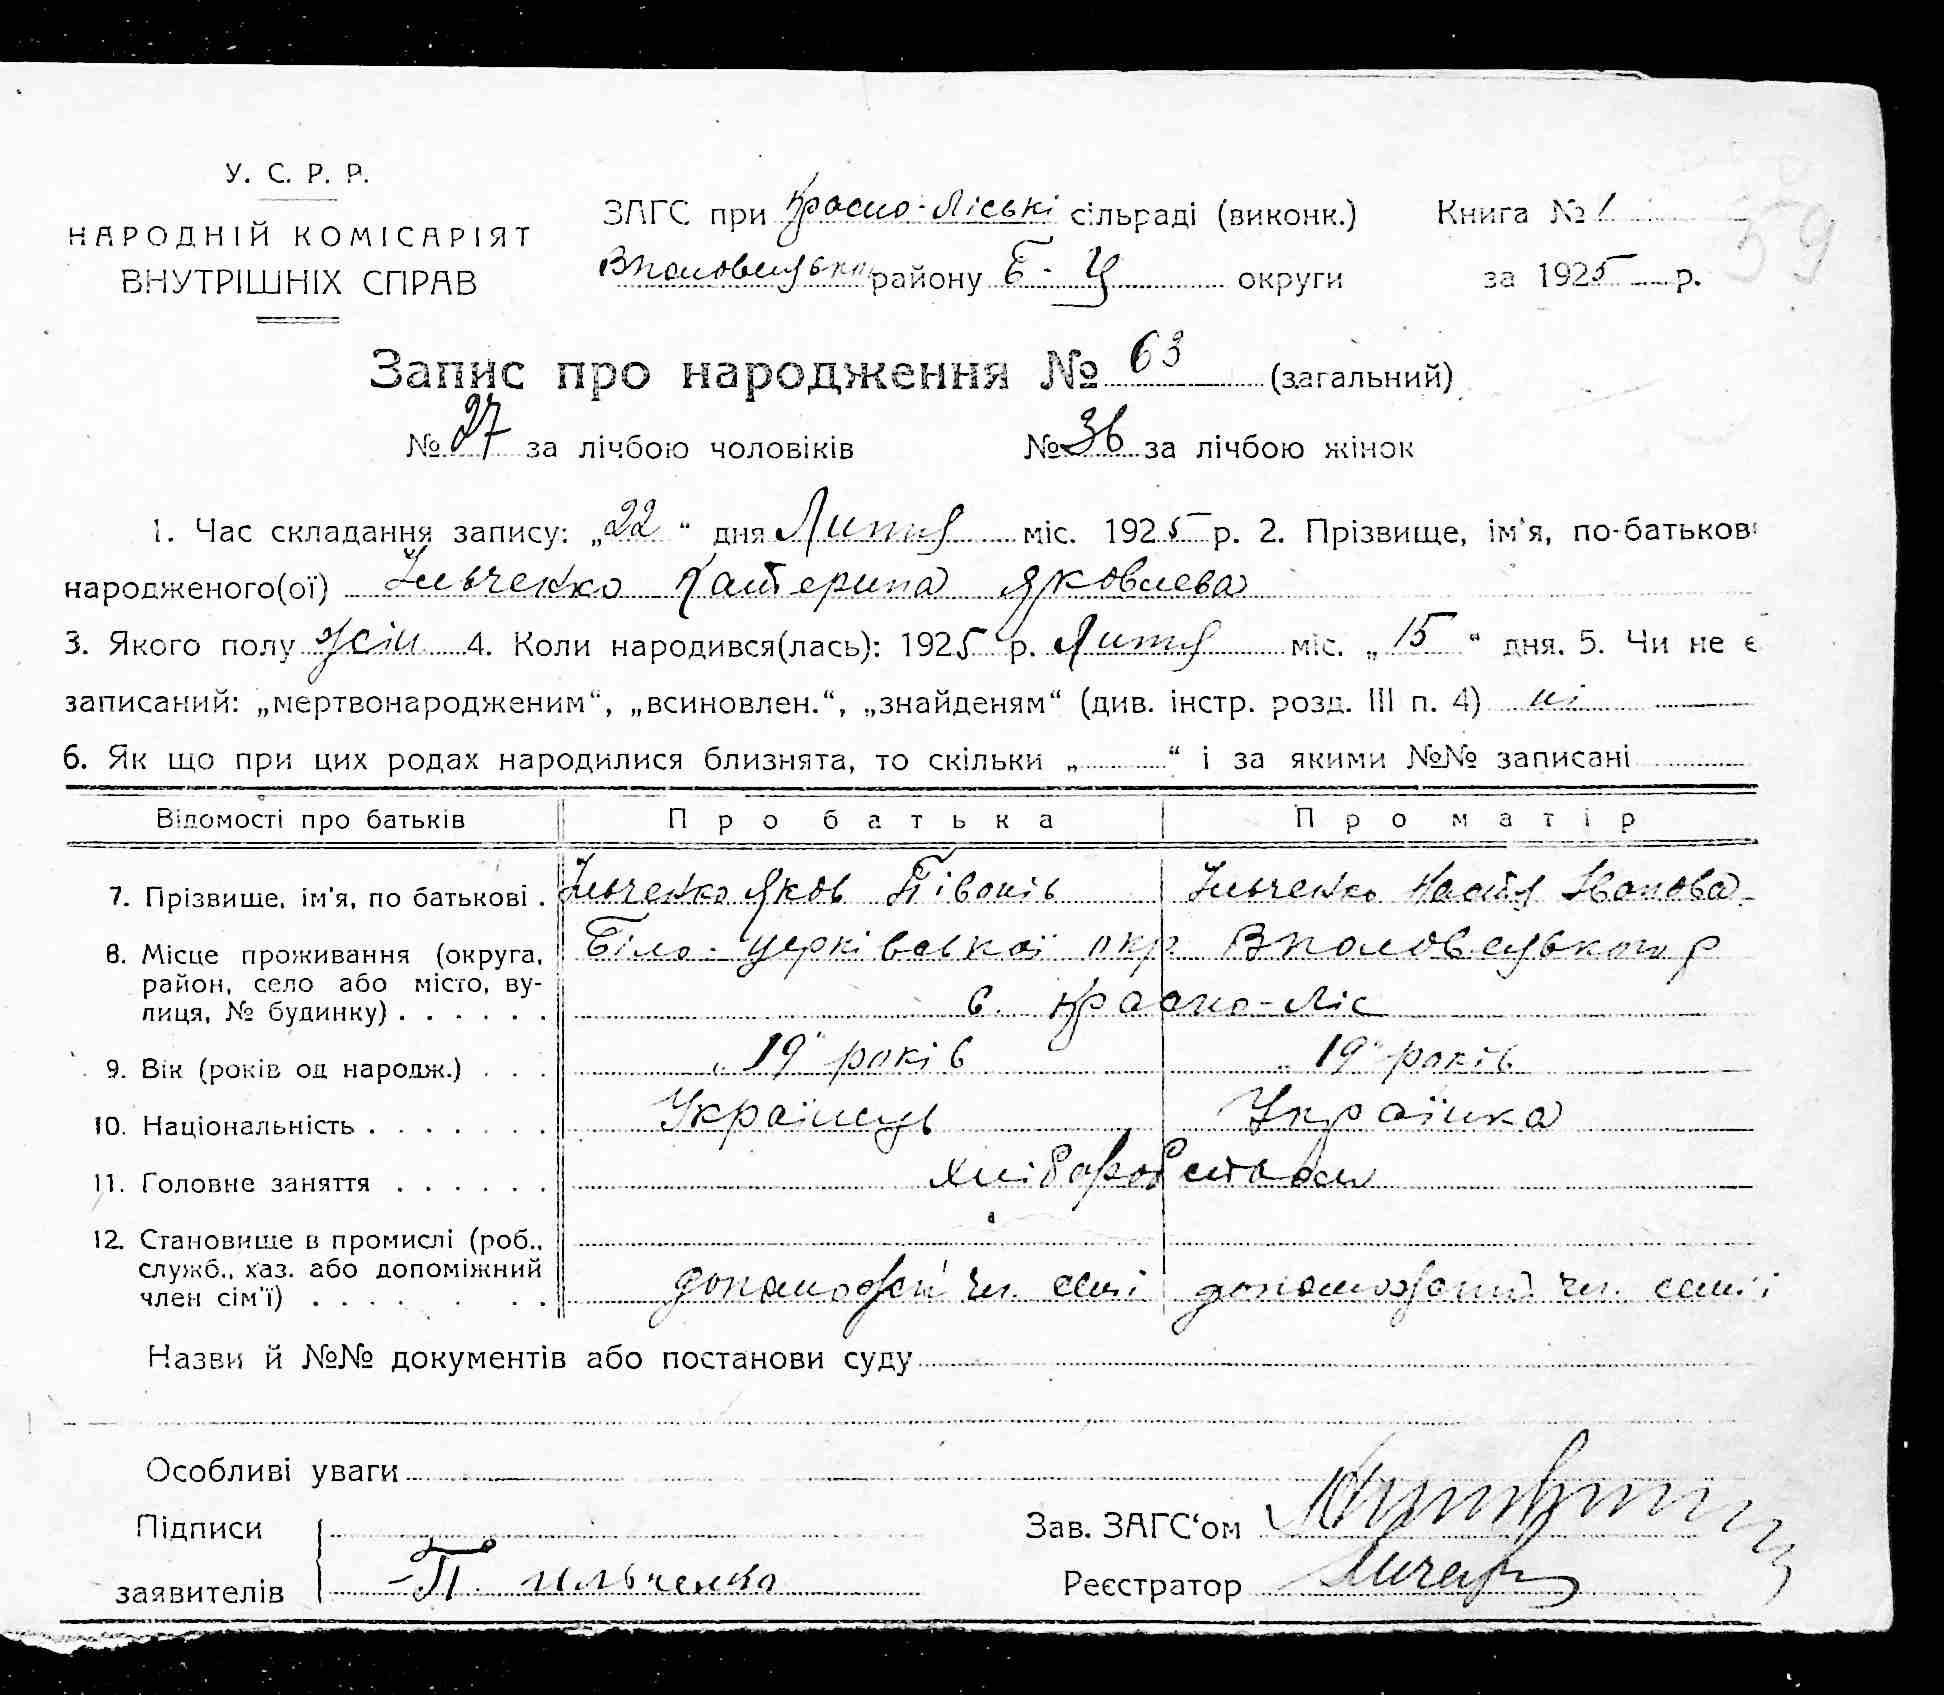 59
У. С. Р. Р.
НАРОДНІЙ КОМІСАРІЯТ
ВНУТРІШНІХ СПРАВ
ЗАГС при Красно-Ліські сільраді (виконк.)
Книга № 1
району Б-Ц округи
за 1925 р.
Запис про народження № 63 (загальний)
№ 27 за лічбою чоловіків № 36 за лічбою жінок
1. Час складання запису: „22“ дня Лютня міс. 1925 р. 2. Прізвище, ім'я, по-батькові
народженого(ої) Ільченко Катерина Яковлева
3. Якого полу жін 4. Коли народився(лась): 1925 р. Лютня міс. „15“ дня. 5. Чи не є
записаний: „мертвонародженим“, „всиновлен.“, „знайденям“ (див. інстр. розд. III п. 4) ні
6. Як що при цих родах народилися близнята, то скільки „ “ і за якими №№ записані
Відомості про батьків Про батька Про матір
7. Прізвище, ім'я, по батькові . Ільченко Яков Ільченко Настя Іванова
8. Місце проживання (округа, Біло-церківської окр Вполовецького р
район, село або місто, ву-
лиця, № будинку) . . . . . . с. Красно-Ліс
9. Вік (років од народж.) . . . „19“ років „19“ років
10. Національність . . . . . . . Українець Українка
11. Головне заняття . . . . . . хліборобством
12. Становище в промислі (роб.,
служб., хаз. або допоміжний
член сім'ї) . . . . . . . чл. семі чл. семі
Назви й №№ документів або постанови суду
Особливі уваги
Підписи
Зав. ЗАГС'ом
заявителів П. Ильченко
Реєстратор